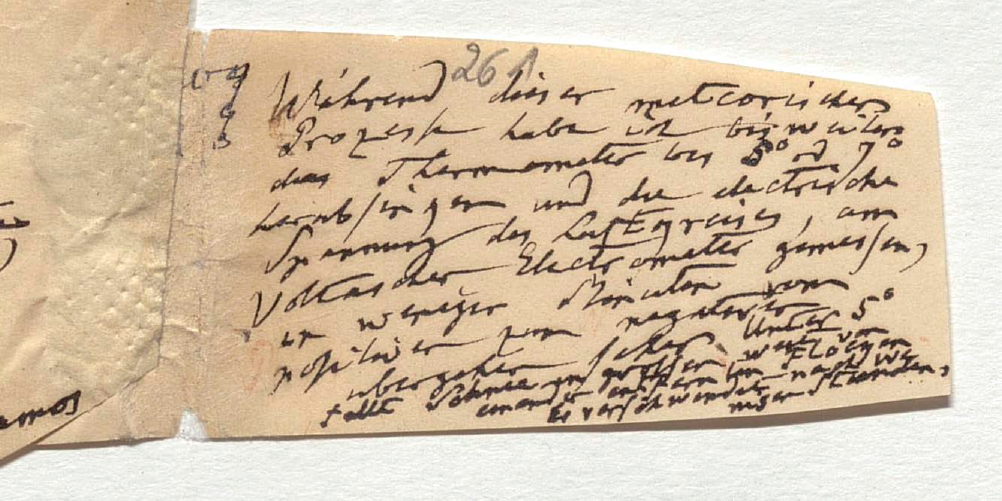 26
Während dieser meteorischen
Prozesse habe ich bisweilen
das Thermometer bis 5° od 7°
herabsinken und die electrische
Spannung des Luftkreises, am
Voltaischen Electrometer gemessen,
in weniger Minuten vom
positiven zum negativen
übergehen sehen. Unter 5°
fällt Schnee in großen weit von
einander entfernten Flocken
Er verschwindet nach
wenigen Stunden.
amos